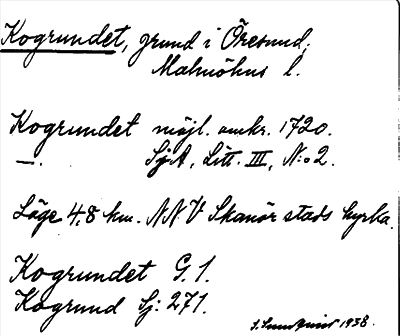 Kogrundet, grund i Öresund,
Malmöhus l.
Kogrundet möjl. omkr. 1720.
—. SjA, Litt. III, N:o 2.
Läge 4.8 km. NNV Skanör stads kyrka.
Kogrundet G. 1.
Kogrund Sj: 271.
1938.